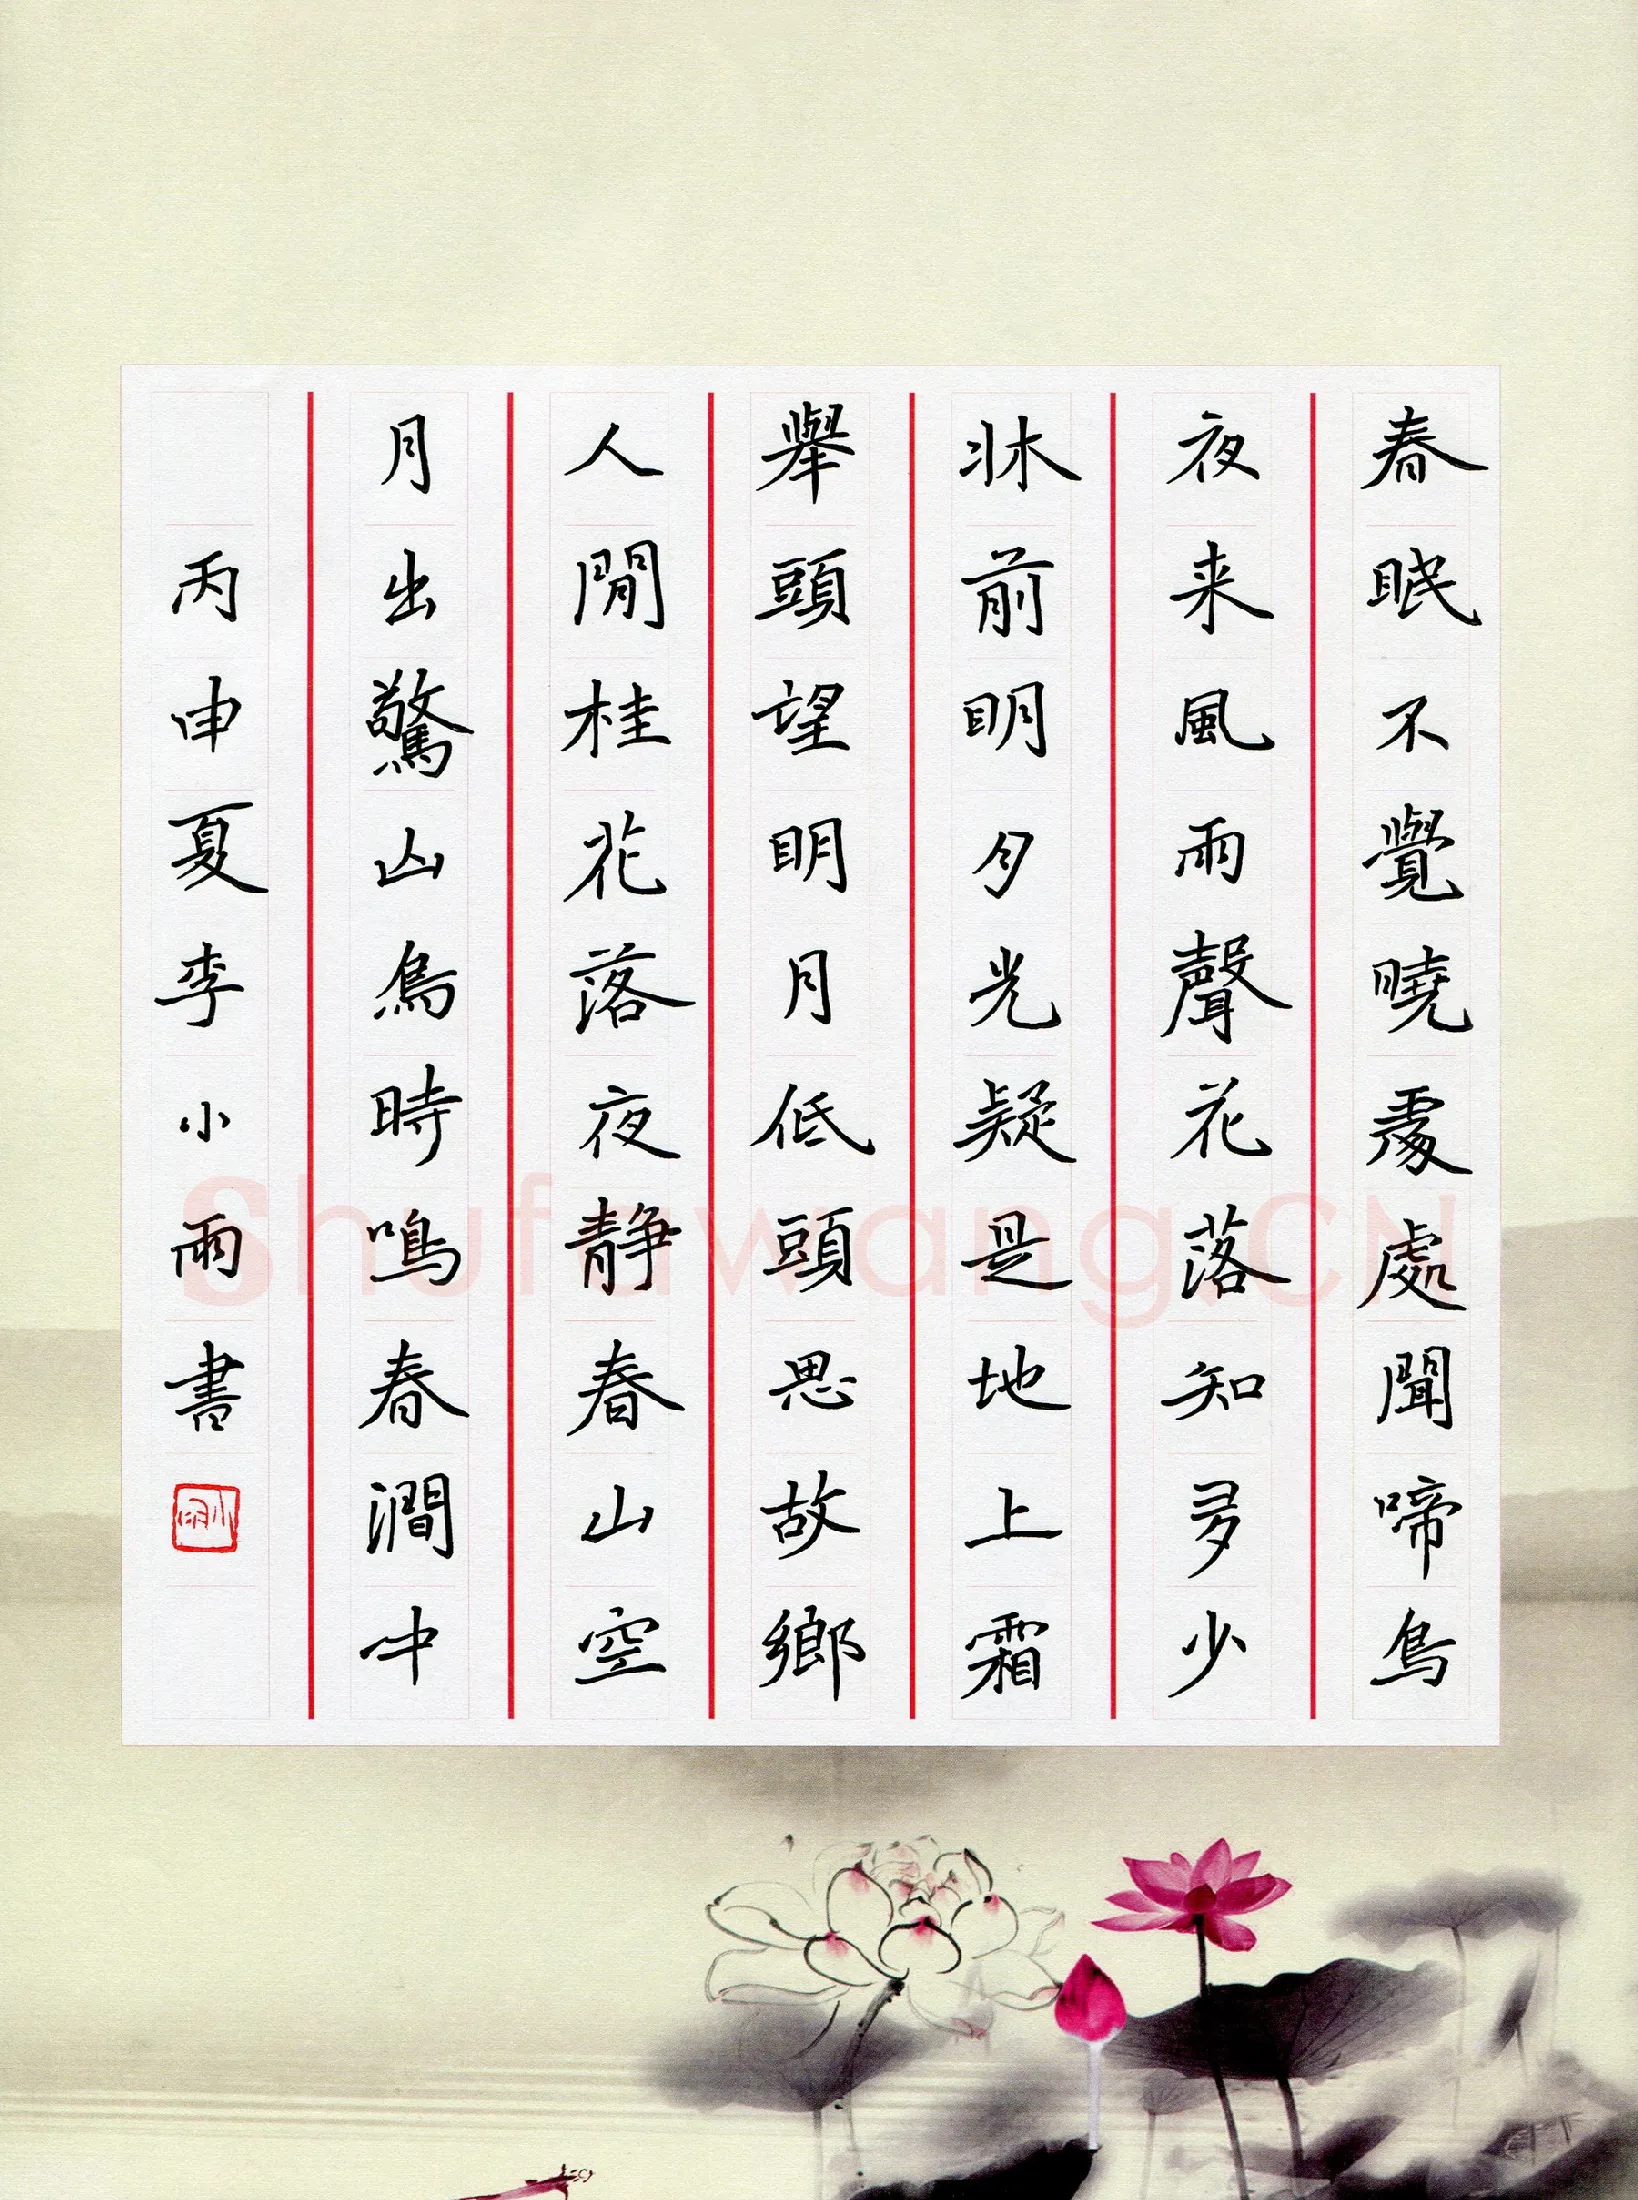 春眠不覺曉處處聞啼鳥
夜来風雨聲花落知多少
牀前明月光疑是地上霜
舉頭望明月低頭思故鄉
人閒桂花落夜静春山空
月出驚山鳥時鳴春澗中
丙申夏李小雨書
小雨
Shufawang.CN